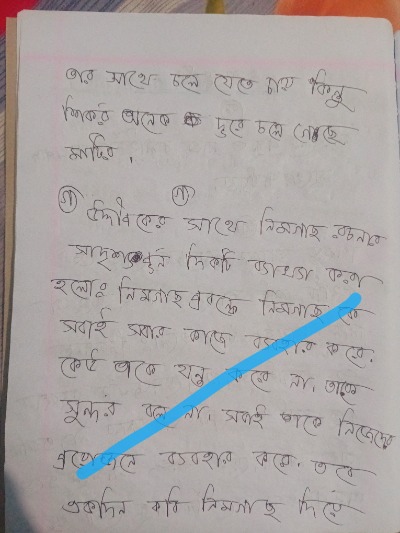 তার সাথে চলে যেতে চায় কিন্তু
শিকর অনেক দূরে চলে গেছে
মাটির।
(গ) (গ)
উদ্দীপকের সাথে নিমগাছ রচনার
সাদৃশ্যপূর্ন দিকটি ব্যাখ্যা করা
হলোঃ নিমগাছ প্রবন্ধে নিমগাছ কে
সবাই সবার কাজে ব্যবহার করে।
কেউ তাকে যত্ন করে না। তাকে
সুন্দর বলে না। সবাই তাকে নিজেদের
প্রয়োজনে ব্যবহার করে। তবে
একদিন কবি নিমগাছ দিয়ে